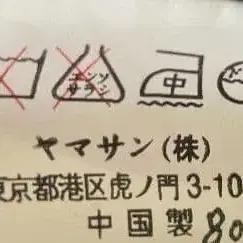 エンソ
サラシ
中
ヤマサン(株)
東京都港区虎ノ門3-10
中国製 80